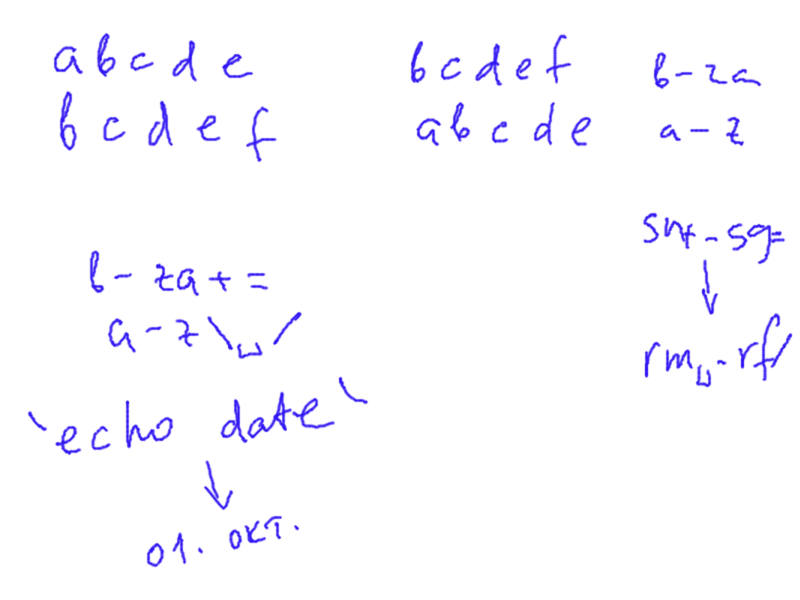 a b c d e
b c d e f
b c d e f
a b c d e
b - z a
a - z
b - z a + =
a - z \ ␣ /
sn+-sg=
↓
rm␣-rf/
`echo date`
↓
01. окт.